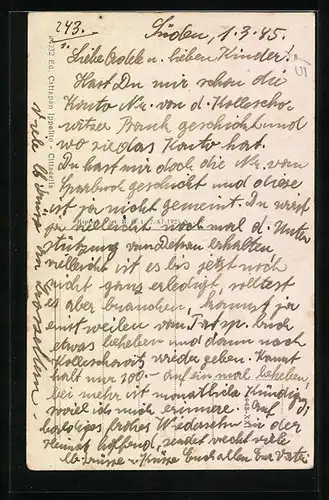 243. Süden, 1.3.45.
Liebe u. lieben Kinder!
Hast Du mir schon die
Konto Nr. von d. Kolleschowitzer
Bank geschickt und
wo sie das Konto hat.
Du hast mir doch die Nr. vom
Sparbuch geschickt und diese
ist ja nicht gemeint. Du wirst
ja vielleicht noch mal d. Unter
stützung von erhalten
vielleicht ist es bis jetzt noch
nicht ganz erledigt, solltest
es aber brauchen, kannst ja
einstweilen vom Buch
etwas beheben und dann nach
Kolleschowitz wieder geben. Kannst
halt nur 200.- auf ein mal beheben,
bei mehr ist monatliche Kündig.
soviel ich mich erinnere. Auf
baldiges frohes Wiedersehn in der
Heimat hoffend, sendet recht viele
lb. Grüsse u. Küsse Euch allen Euer Vater
Viele lb. Grüsse an
Ed. Cattapan Ippolito - Cittadella